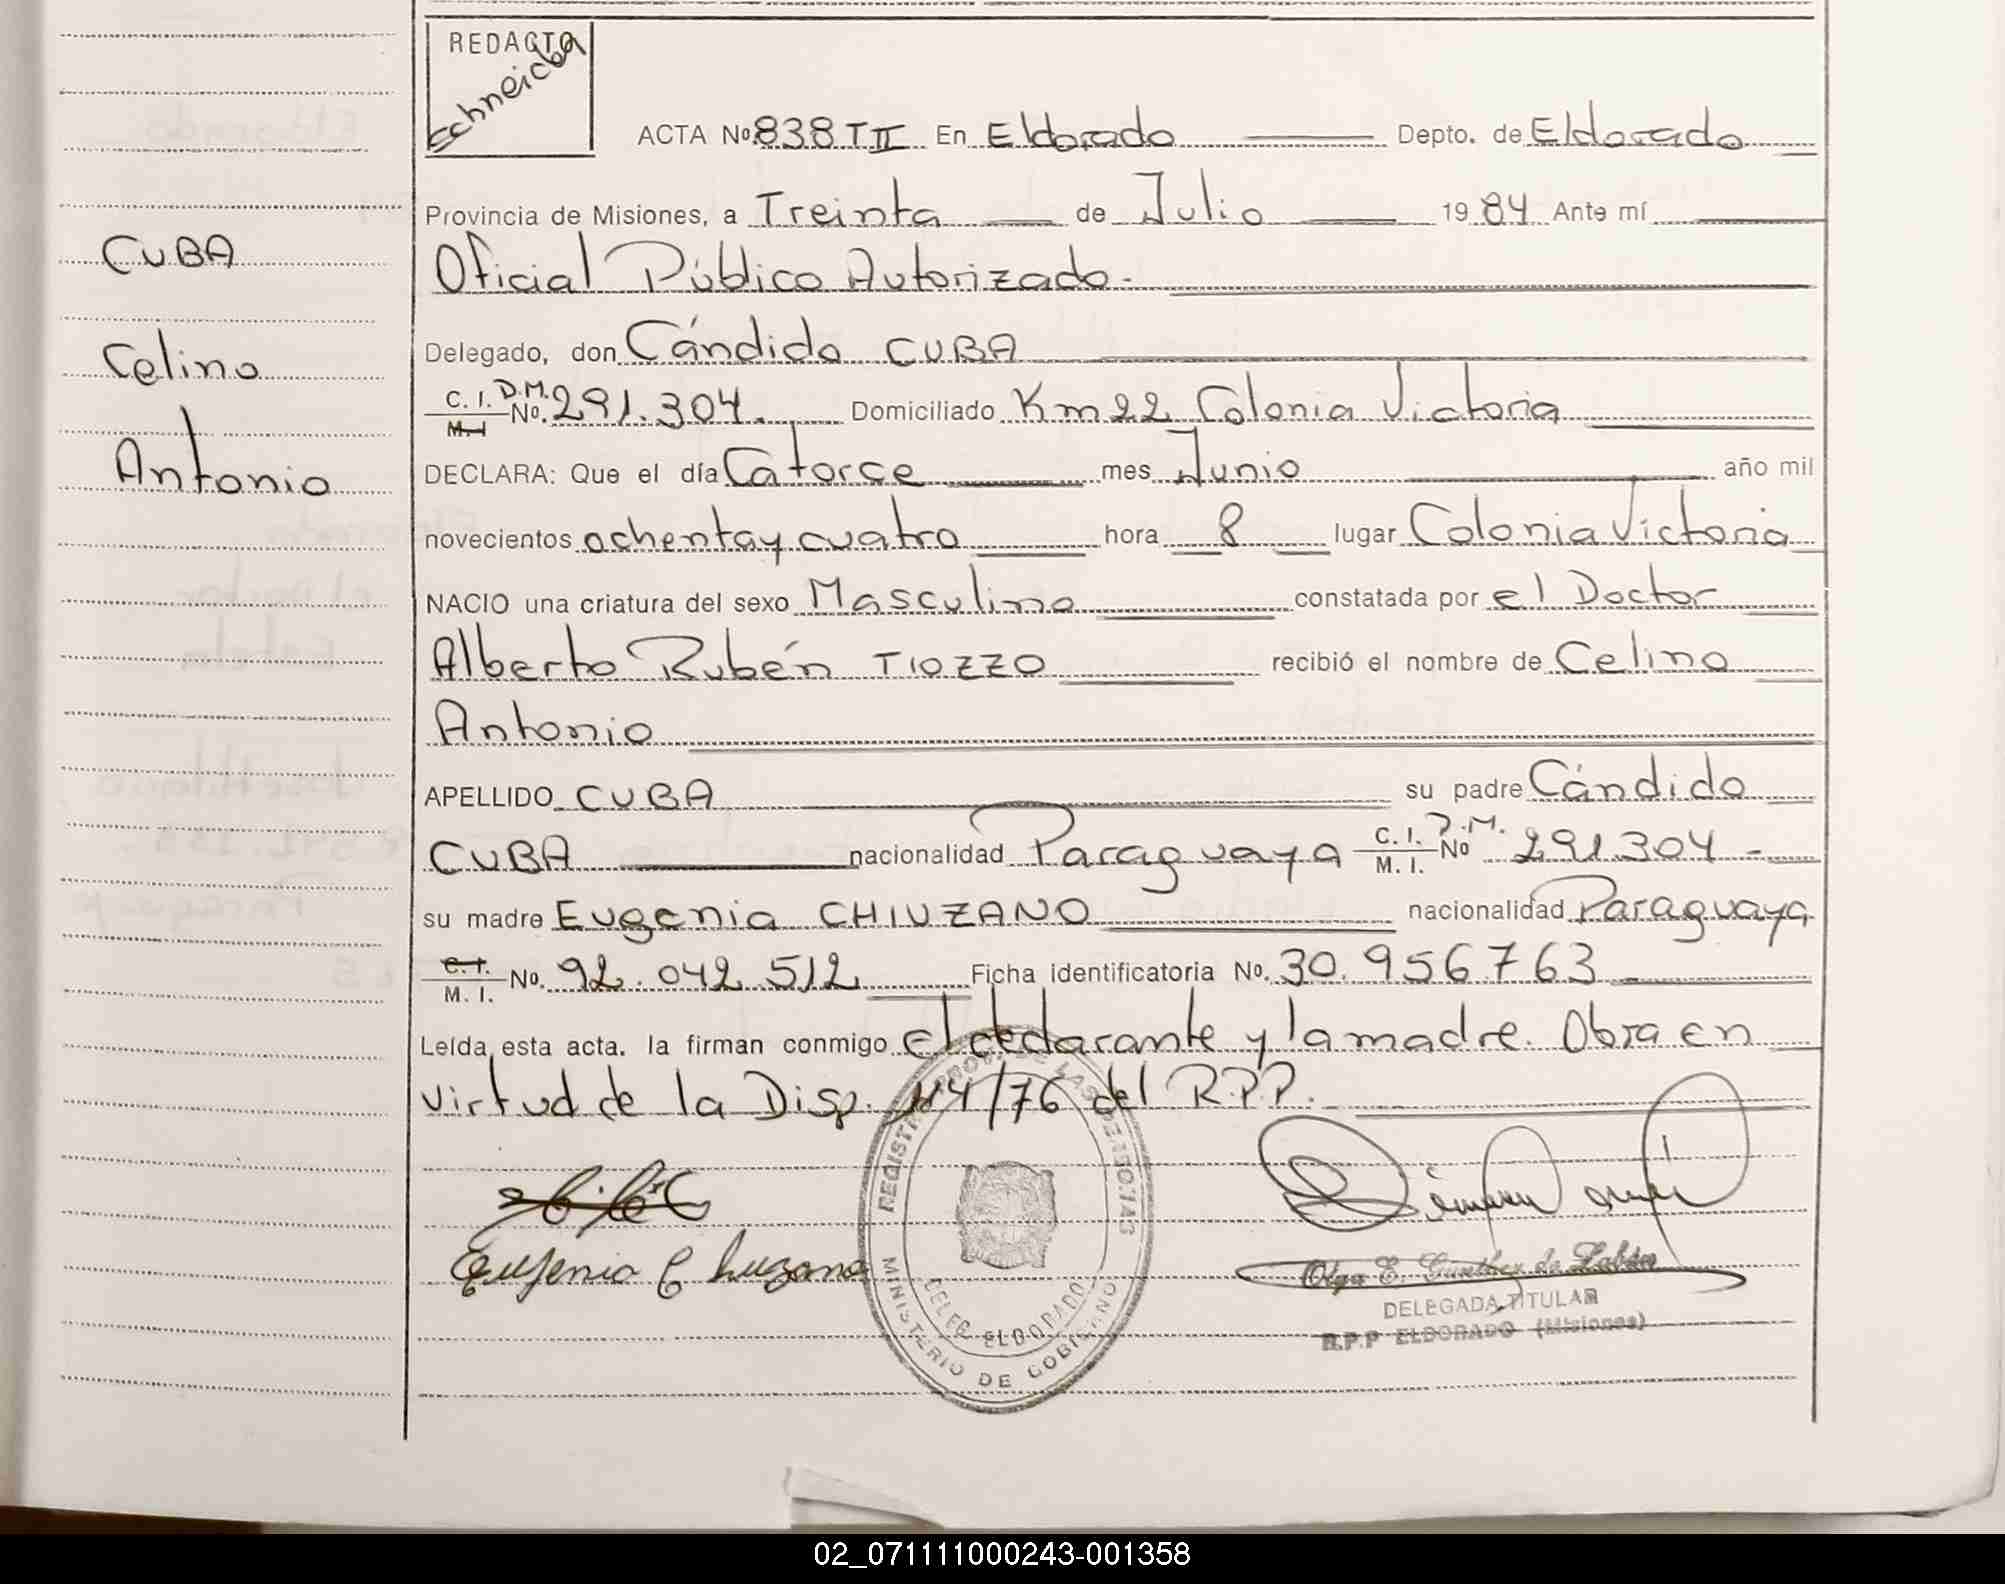 REDACTO
Schneider
ACTA Nº 838 T II En Eldorado Depto. de Eldorado
Provincia de Misiones, a Treinta de Julio 1984 Ante mí
Oficial Público Autorizado.
CUBA
Delegado, don Cándido CUBA
Celino
C. I. D.M. Nº. 291.304. Domiciliado Km 22 Colonia Victoria
M. I
Antonio
DECLARA: Que el día Catorce mes Junio año mil
novecientos ochenta y cuatro hora 8 lugar Colonia Victoria
NACIO una criatura del sexo Masculino constatada por el Doctor
Alberto Rubén TIOZZO recibió el nombre de Celino
Antonio
APELLIDO CUBA su padre Cándido
CUBA nacionalidad Paraguaya C. I. D.M. Nº 291.304 -
M. I.
su madre Eugenia CHIUZANO nacionalidad Paraguaya
C. I. Nº. 92.042.512 Ficha identificatoria Nº. 30.956763
M. I.
Leída esta acta. la firman conmigo el declarante y la madre. Obra en
virtud de la Disp. 114/76 del R.P.P.
REGISTRO PROV. DE LAS PERSONAS
MINISTERIO DE GOBIERNO
DELEG. ELDORADO
Eugenia Chuzano
Olga E. Gunther de Labán
DELEGADA TITULAR
R.P.P ELDORADO (Misiones)
02_071111000243-001358